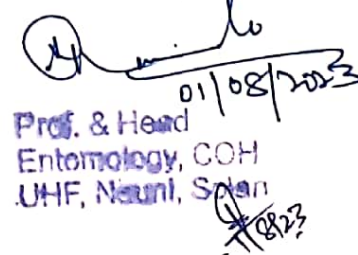 01/08/2023
Prof. & Head
Entomology, COH
UHF, Nauni, Solan
8/23